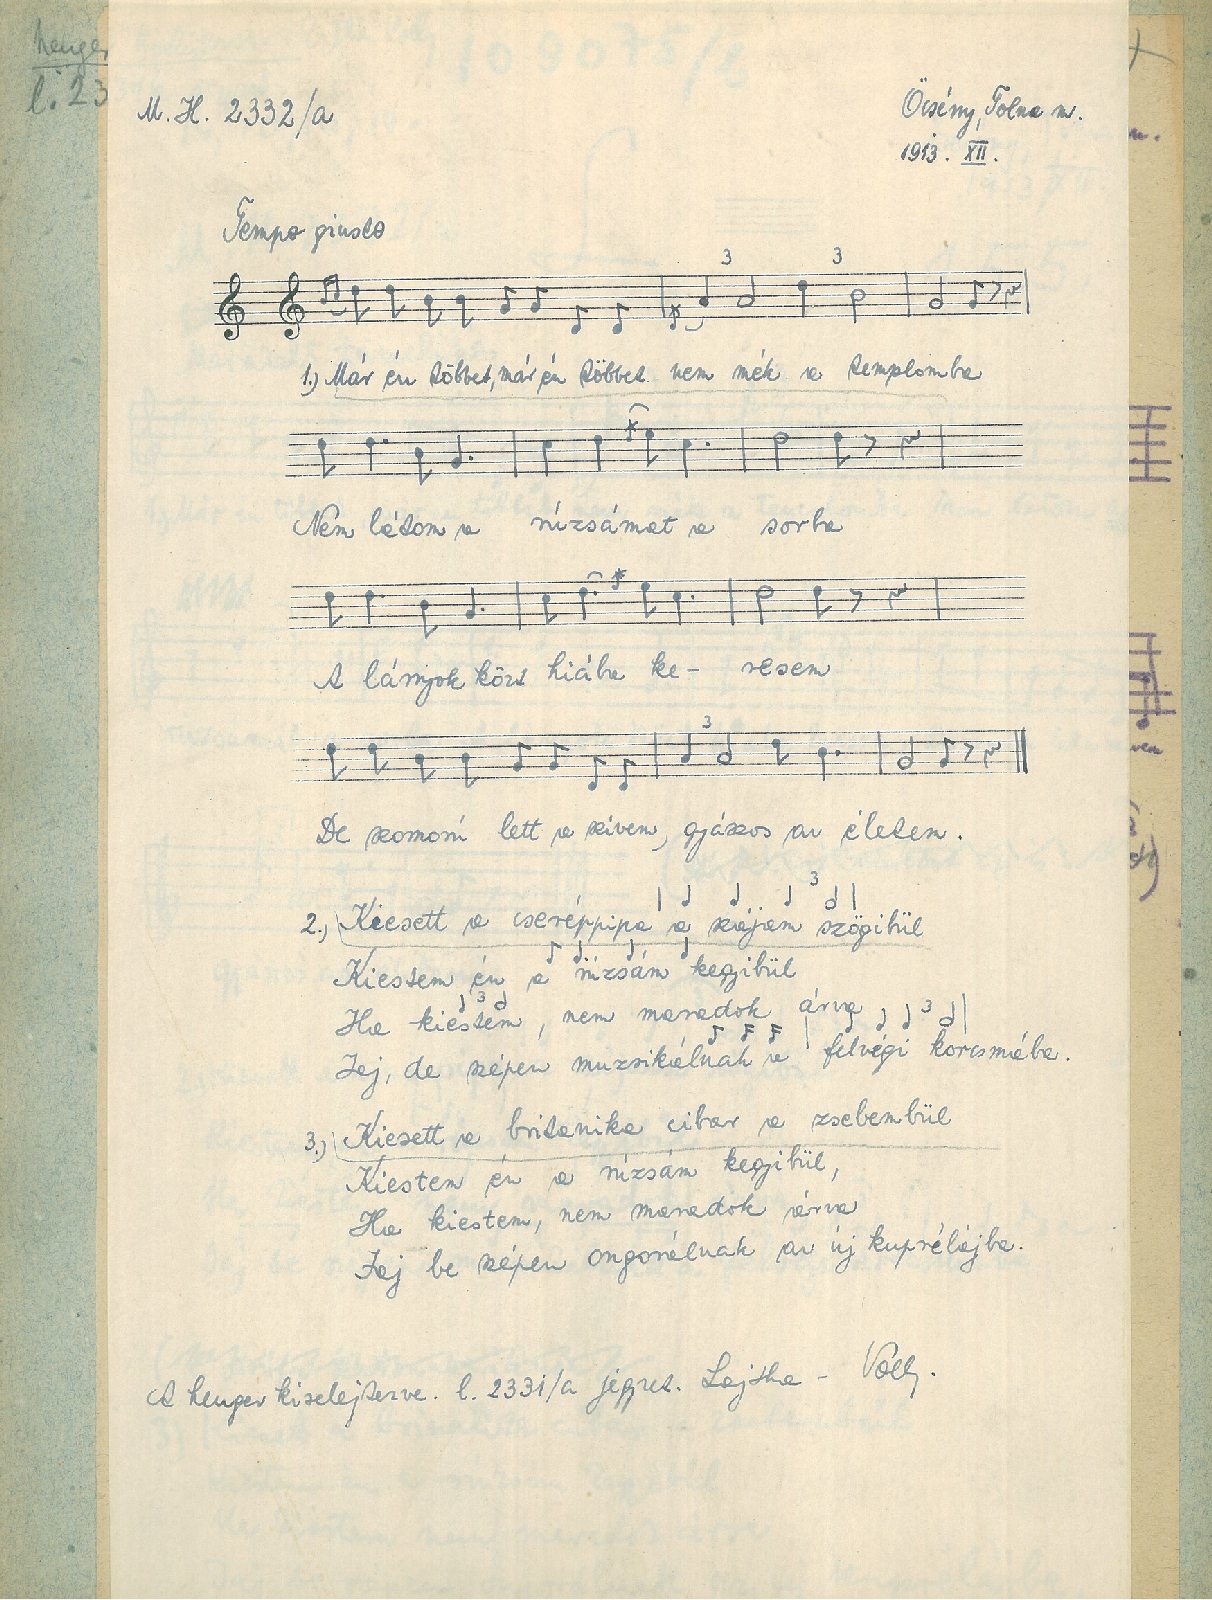 henger
l. 23
M. H. 2332/a
Őcsény, Tolna m.
1913. XII.
Tempo giusto
3 3
1.) Már én többet, már én többet nem mék a templomba
Nem látom a rúzsámat a sorba
A lányok közt hiába ke- resem
3
De szomorú lett a szívem, gyászos az életem.
3
2.) Kiesett a cseréppipa a szájam szögibül
Kiestem én a rúzsám kegyibül
3
Ha kiestem, nem maradok árva
3
Jej, de szépen muzsikálnak a felvégi korcsmába.
3.) Kiesett a britanika cibar a zsebembül
Kiestem én a rúzsám kegyibül,
Ha kiestem, nem maradok árva
Jej be szépen ongorálnak az új kuprélájba.
A henger kiselejtezve. l. 2331/a jegyzet. Lajtha - Volly.